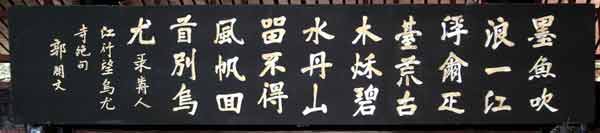 墨魚吹
浪一江
浮爾疋
臺荒古
木稠碧
水丹山
留不得
風帆回
首別烏
尤 录前人
江行望烏尤
寺絕句
郭開文